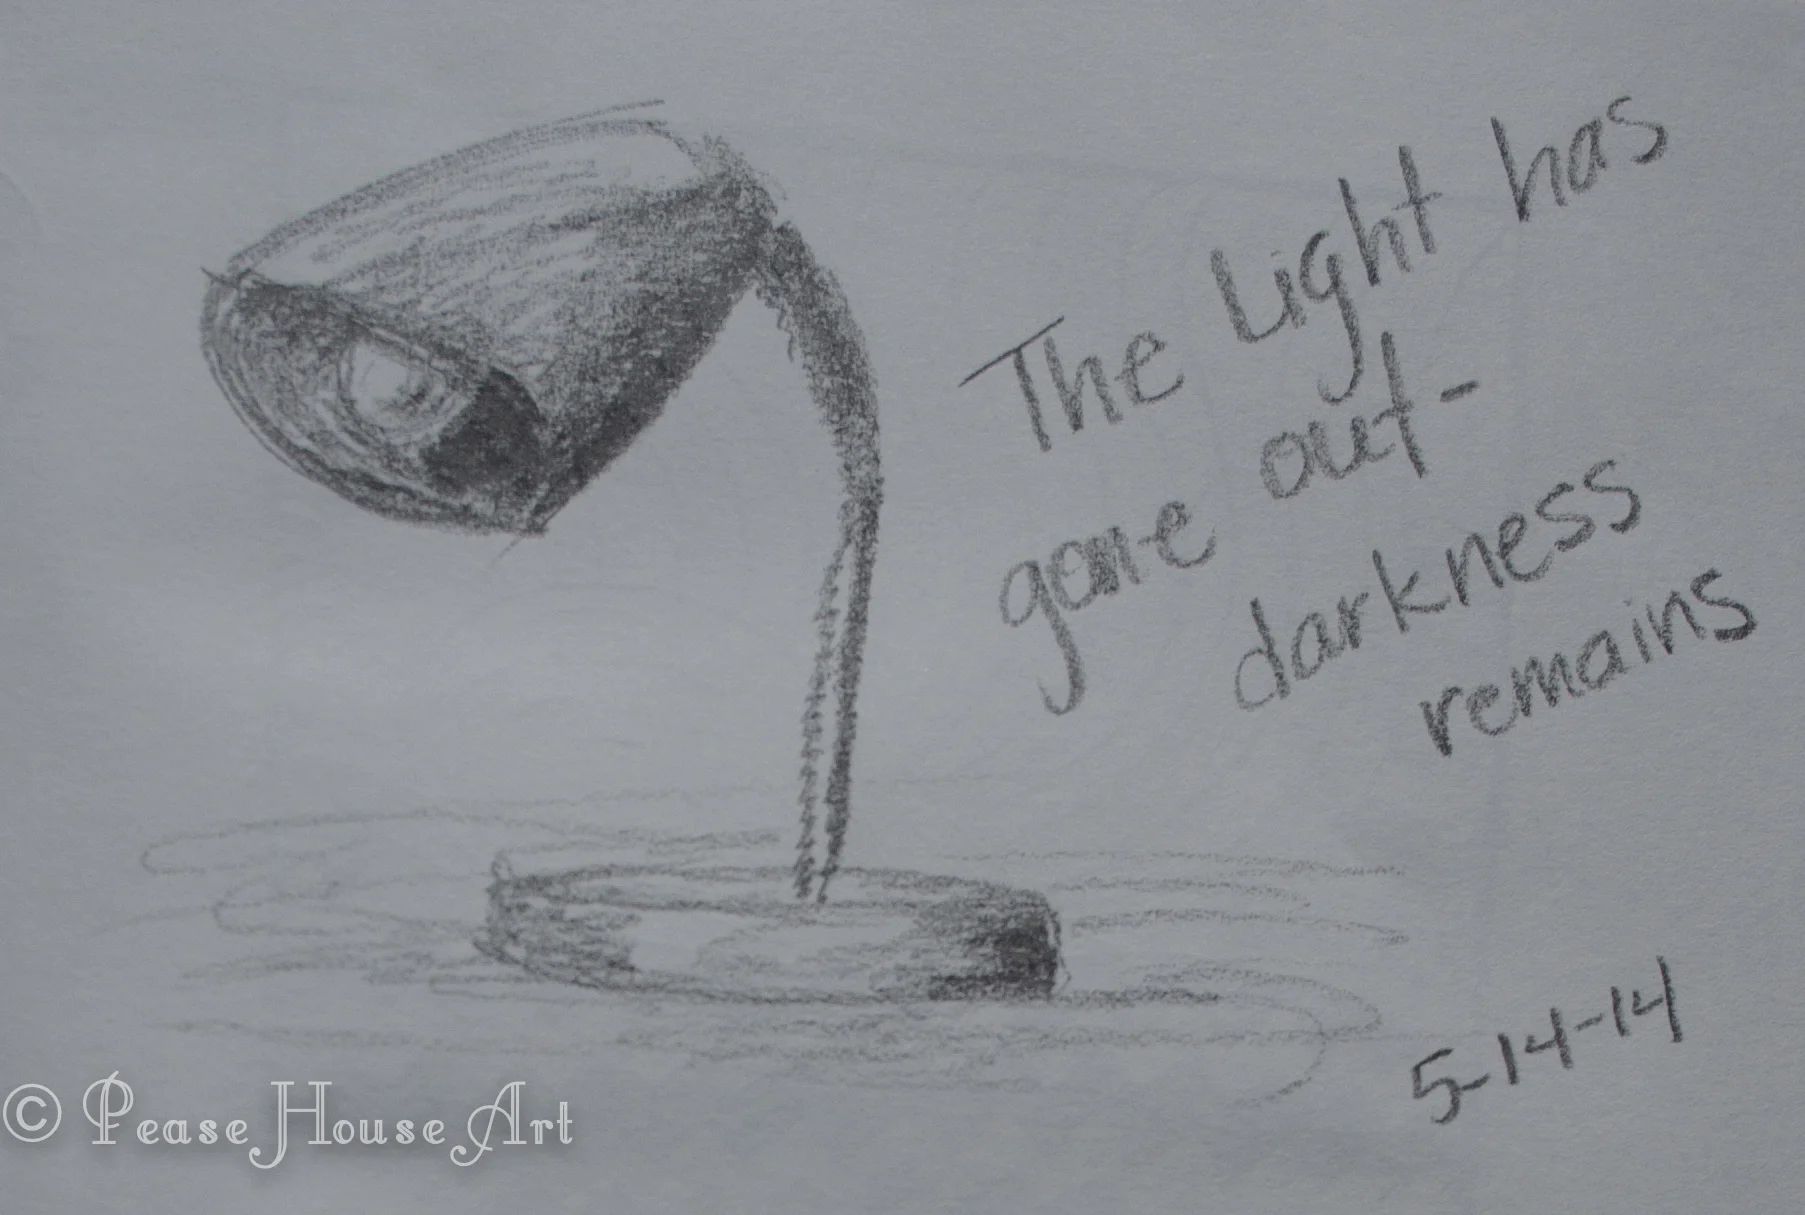 The Light has
gone out-
darkness
remains
5-14-14
© Pease House Art